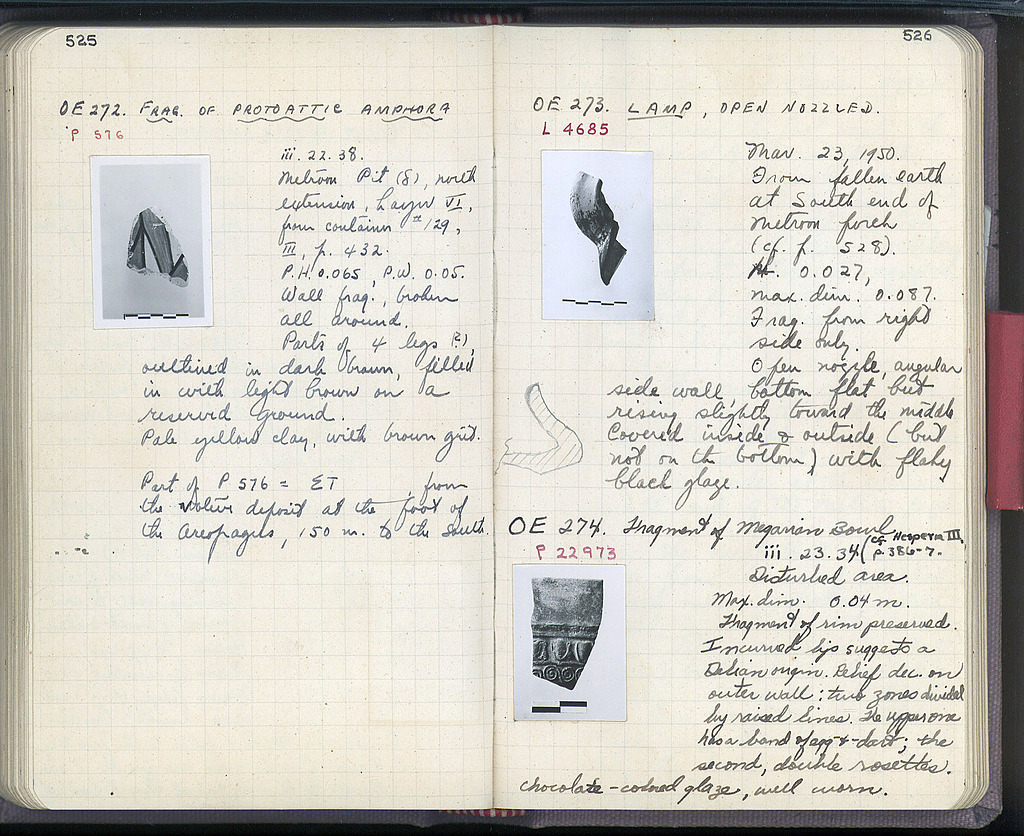 525
OE 272. FRAG. OF PROTOATTIC AMPHORA
P 576
iii. 22. 38.
Metroon Pit (8), north
extension, Layer VI,
from container #129,
III, p. 432.
P.H. 0.065, P.W. 0.05.
Wall frag., broken
all around.
Parts of 4 legs (?),
outlined in dark brown, filled
in with light brown on a
reserved ground.
Pale yellow clay, with brown grit.
Part of P 576 = ET from
the votive deposit at the foot of
the Areopagus, 150 m. to the South.
526
OE 273. LAMP, OPEN NOZZLED.
L 4685
Mar. 23, 1950.
From fallen earth
at South end of
Metroon porch
(cf. p. 528).
H. 0.027,
max. dim. 0.087.
Frag. from right
side only.
Open nozzle, angular
side wall, bottom flat but
rising slightly toward the middle
Covered inside & outside (but
not on the bottom) with flaky
black glaze.
OE 274. Fragment of Megarian Bowl
P 22973
iii. 23. 34 (cf. Hesperia III,
p. 386-7.
Disturbed area.
Max. dim. 0.04 m.
Fragment of rim preserved.
Incurved lip suggests a
Delian origin. Relief dec. on
outer wall: two zones divided
by raised lines. The upper one
has a band of egg-&-dart; the
second, double rosettes.
chocolate-colored glaze, well worn.